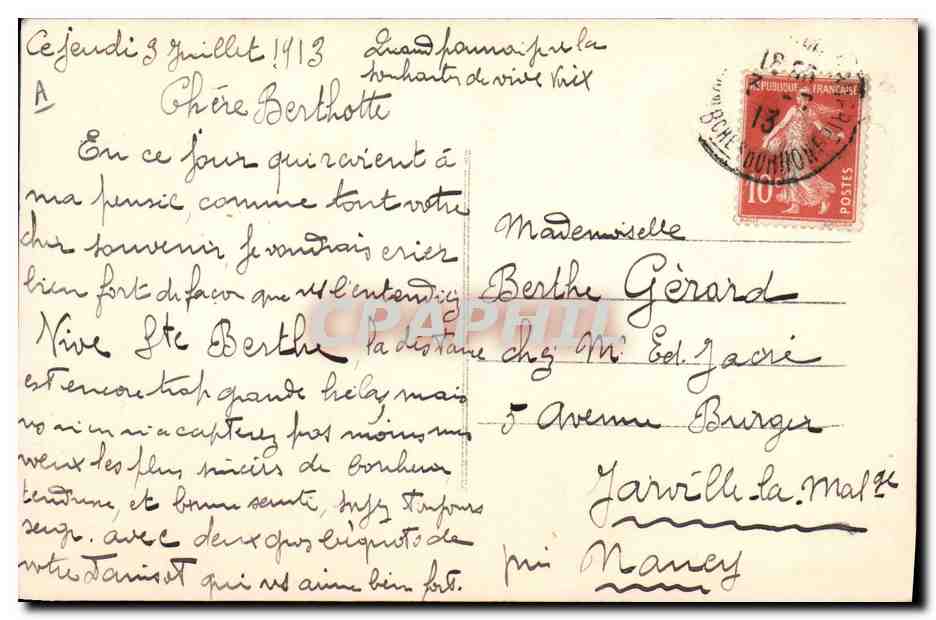 Ce jeudi 3 Juillet 1913
Quand pourrai je te la
souhaiter de vive voix
A
Chère Berthotte
En ce jour qui revient à
ma pensée, comme tout votre
cher souvenir, je voudrais crier
bien fort de façon que vs l'entendiez
Vive Ste Berthe, la distance
est encore trop grande hélas, mais
vous n'en accepterez pas moins mes
vœux les plus sincères de bonheur
tendresse, et bonne santé,
toujours
avec deux gros bécots de
votre qui vs aime bien fort.
Mademoiselle
Berthe Gérard
chez Mr Ed. Jacré
5 Avenue Burger
Jarville-la-Malge
près Nancy
REPUBLIQUE FRANÇAISE
10
POSTES
13
BCHES DU RHONE
CPAPHIL